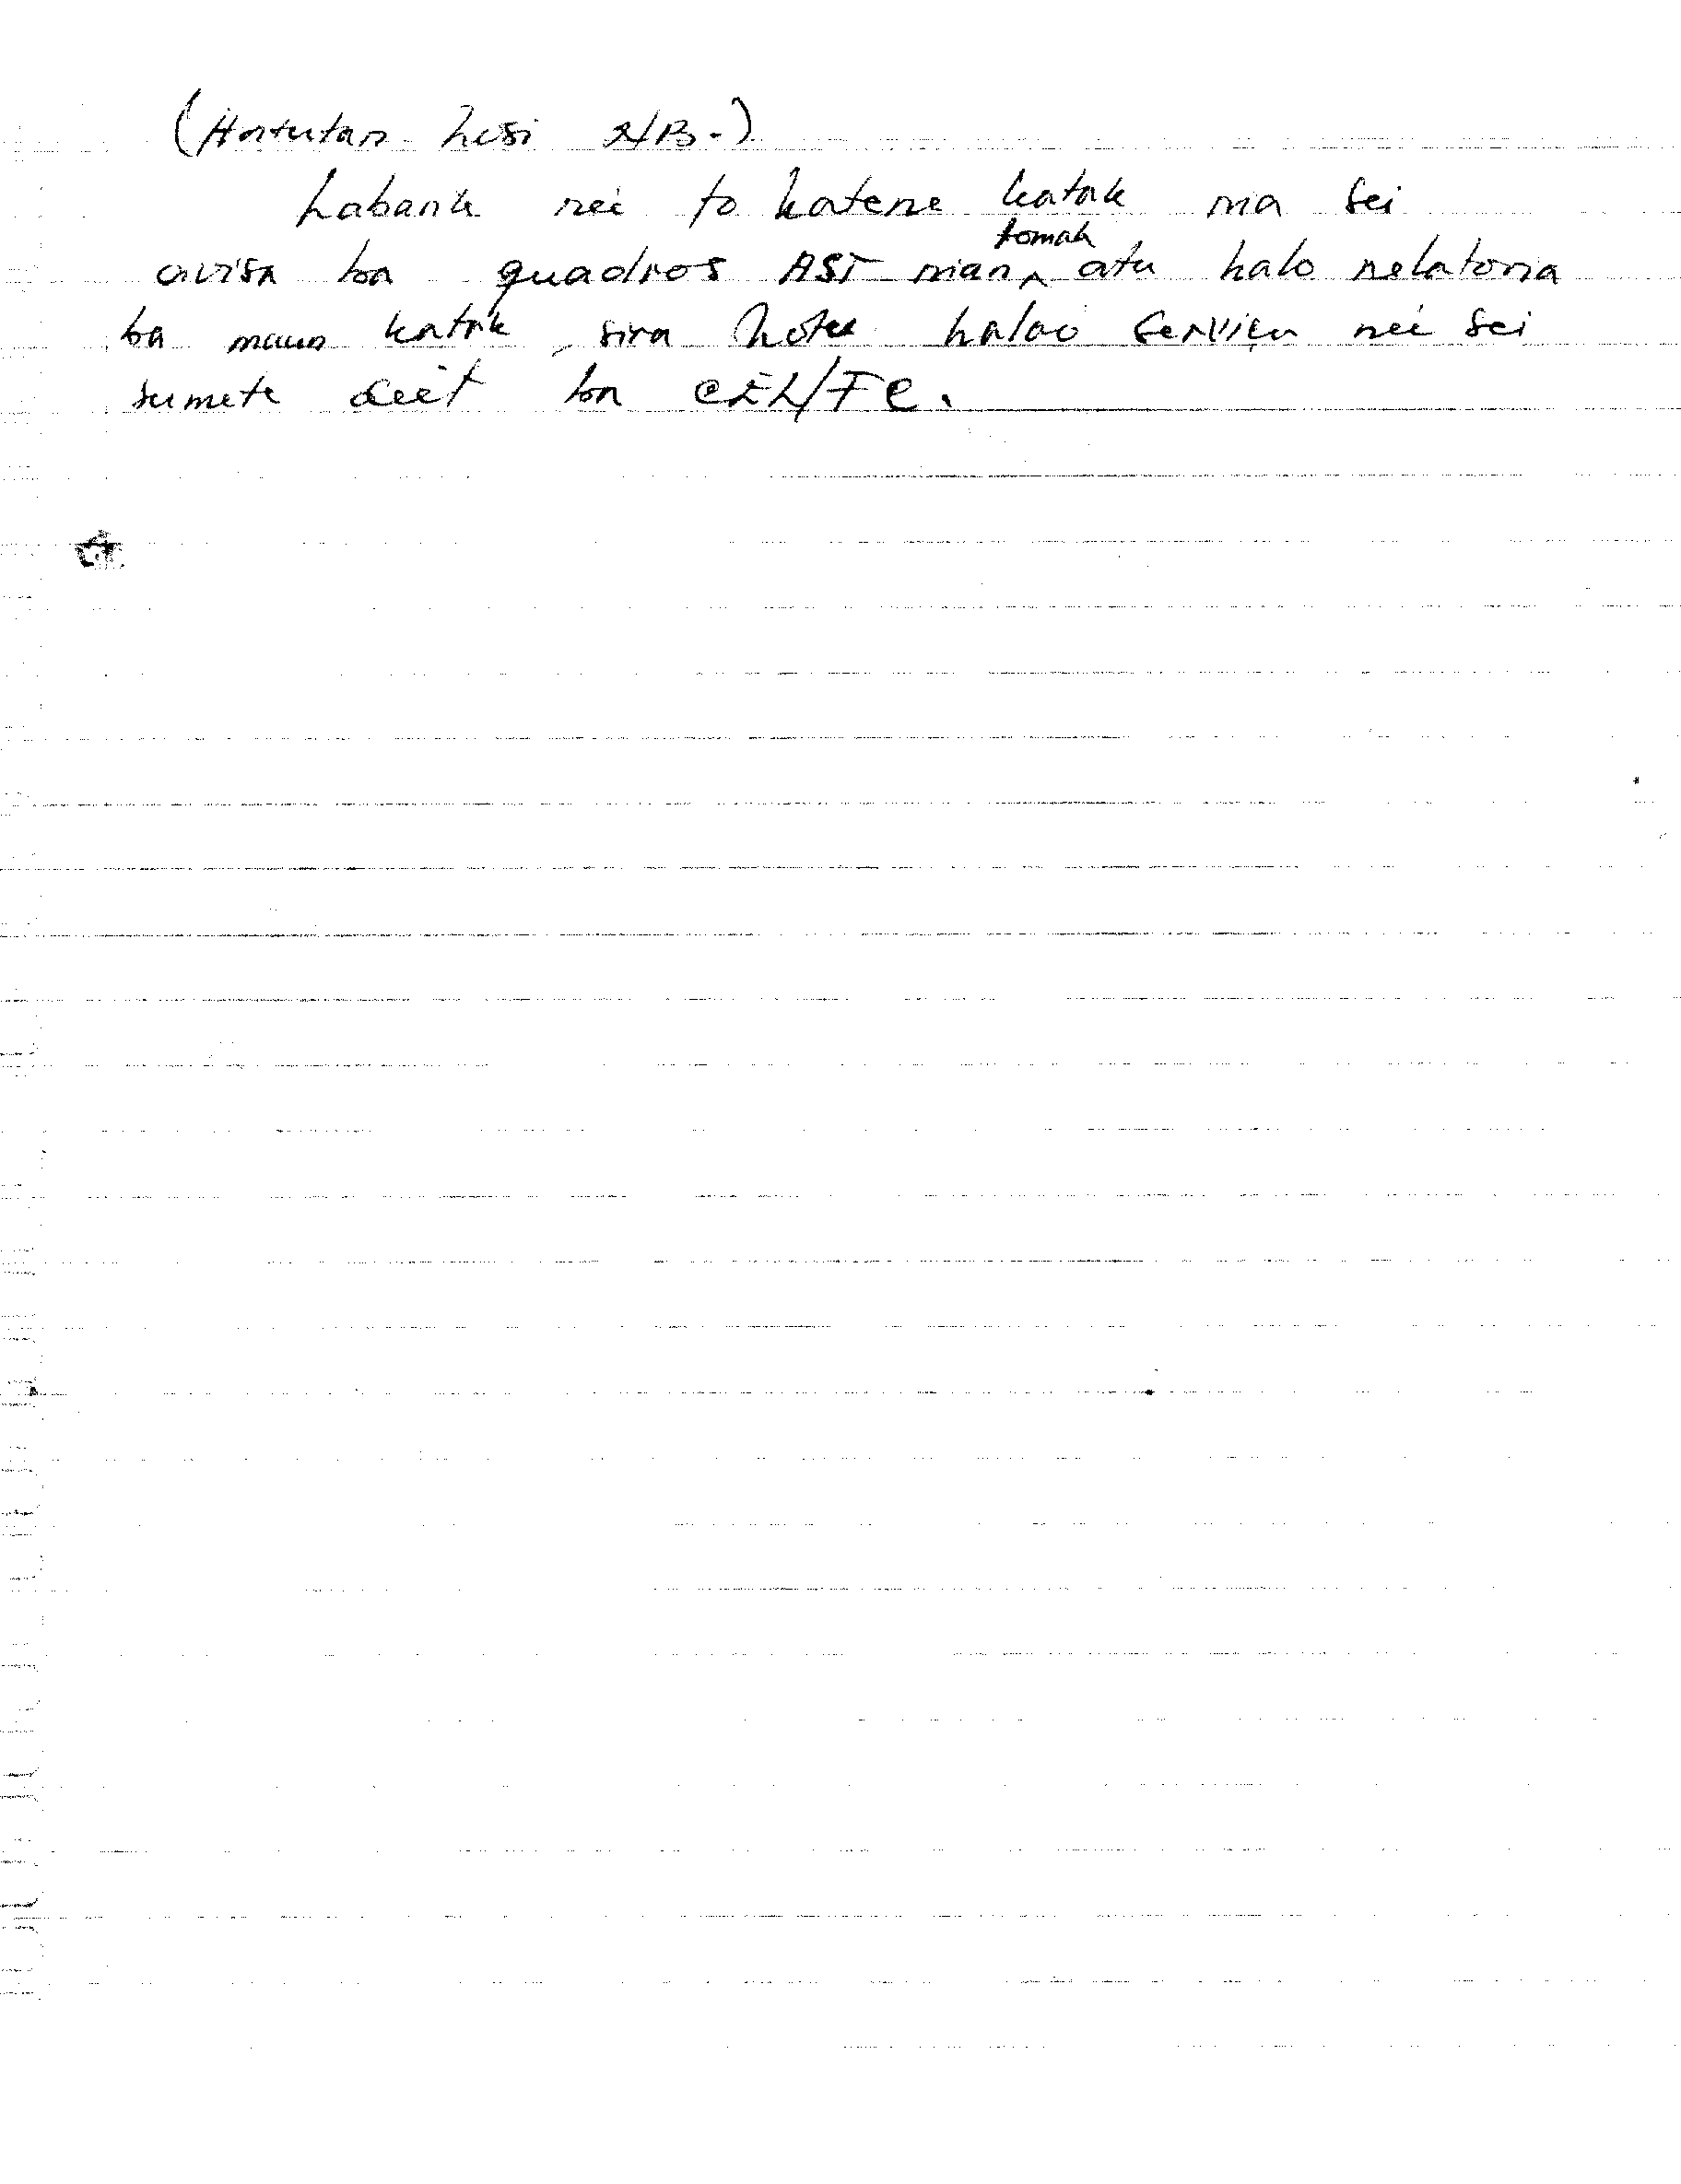 (Hortutan husi NB.)
Labarik nee to hatene katak nia sei
avisa ba quadros AST nian tomak atu halo relatoria
ba maun katak, sira hotu halao serviçu nee sei
sumete deit ba CEL/FC.